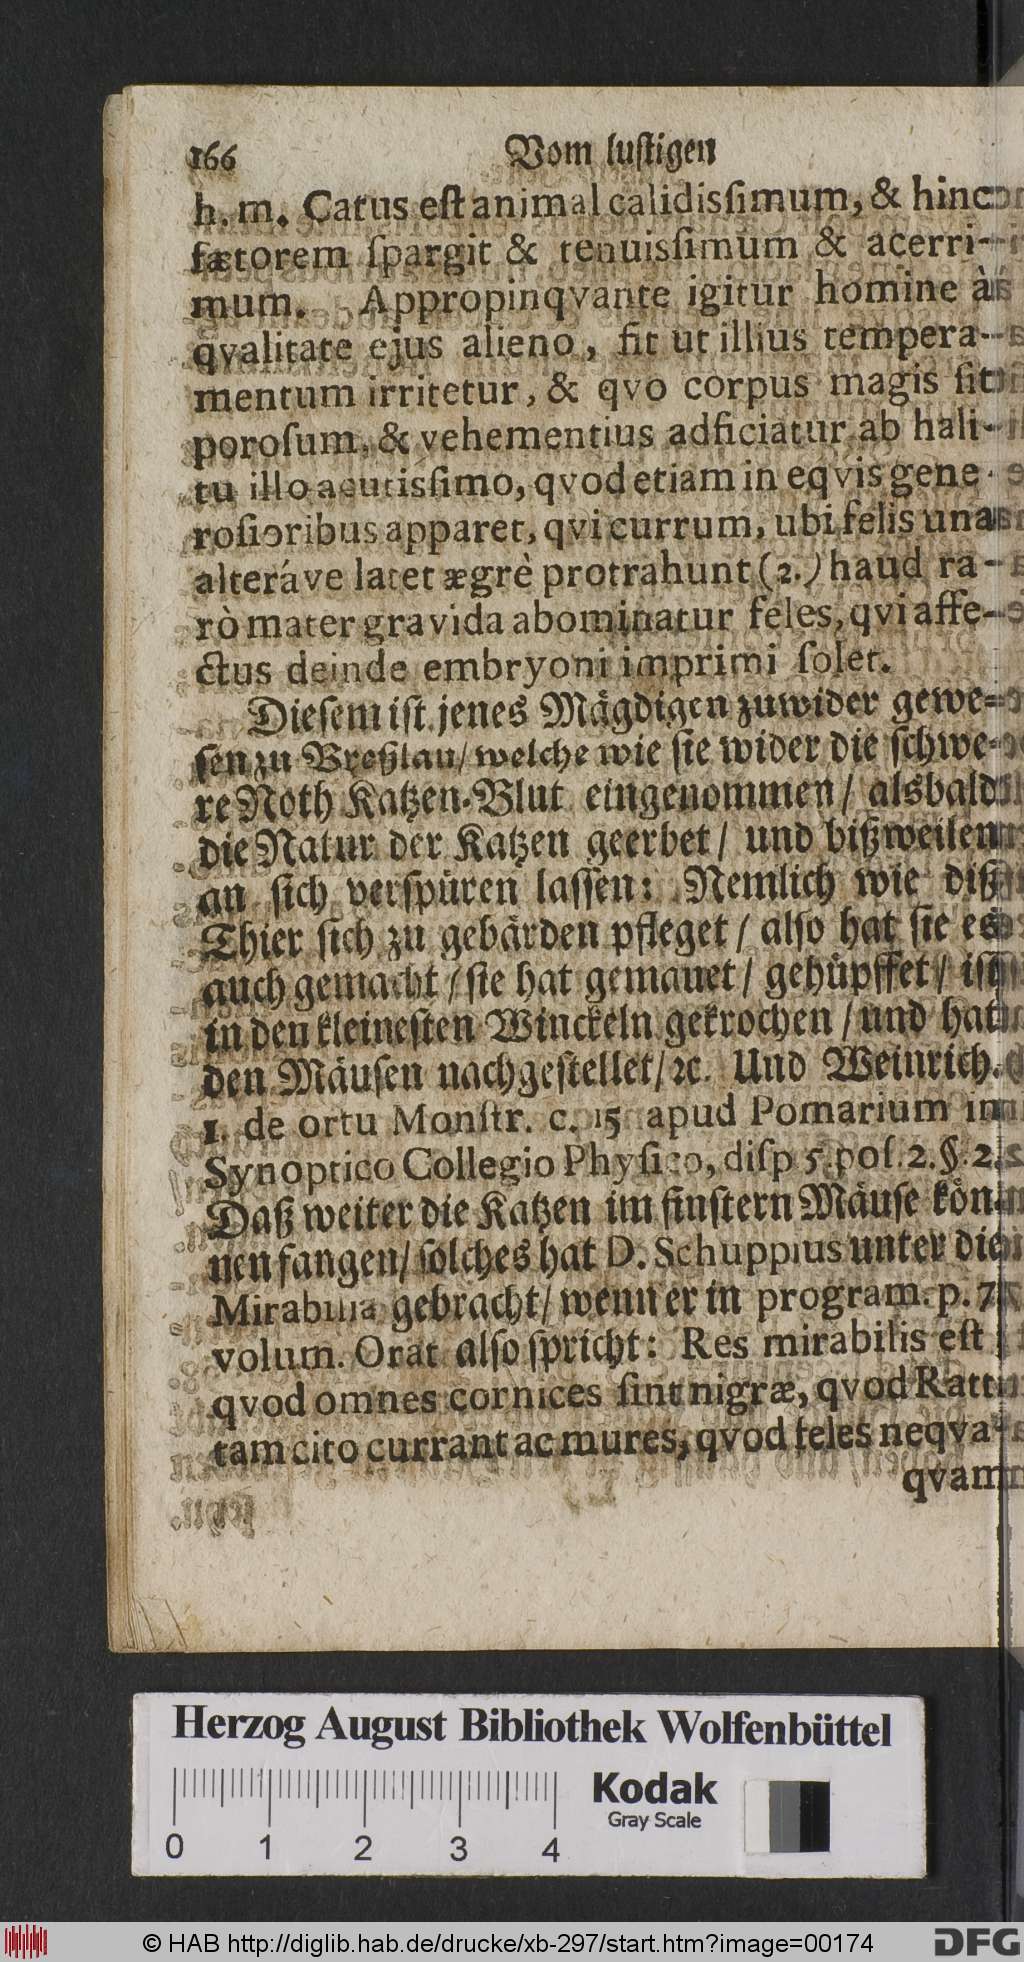 166 Vom luſtigen
h. m. Catus eſt animal calidisſimum, & hinc
fætorem ſpargit & tenuisſimum & acerri-
mum. Appropinqvante igitur homine à
qvalitate ejus alieno, fit ut illius tempera-
mentum irritetur, & qvo corpus magis ſit
poroſum, & vehementius adficiatur ab hali-
tu illo acutisſimo, qvod etiam in eqvis gene-
roſioribus apparet, qvi currum, ubi felis una
alteráve latet ægrè protrahunt (2.) haud ra-
rò mater gravida abominatur feles, qvi affe-
ctus deinde embryoni imprimi ſolet.
Dieſem iſt jenes Mägdigen zuwider gewe-
ſen zu Breßlau/ welche wie ſie wider die ſchwe-
re Noth Katzen-Blut eingenommen/ alsbald
die Natur der Katzen geerbet/ und bißweilen
an ſich verſpüren laſſen: Nemlich wie diß
Thier ſich zu gebärden pfleget/ alſo hat ſie es
auch gemacht/ ſie hat gemauet/ gehüpffet/ iſt
in den kleineſten Winckeln gekrochen/ und hat
den Mäuſen nachgeſtellet/ ꝛc. Und Weinrich.
1. de ortu Monſtr. c. 15 apud Pomarium in
Synoptico Collegio Phyſico, diſp 5. poſ. 2. §. 2.
Daß weiter die Katzen im finſtern Mäuſe kön-
nen fangen/ ſolches hat D. Schuppius unter die
Mirabilia gebracht/ wenn er in program. p. 7
volum. Orat alſo ſpricht: Res mirabilis eſt
qvod omnes cornices ſint nigræ, qvod Ratti
tam cito currant ac mures, qvod feles neqva-
qvam
Herzog August Bibliothek Wolfenbüttel
Kodak
Gray Scale
0 1 2 3 4
© HAB http://diglib.hab.de/drucke/xb-297/start.htm?image=00174
DFG